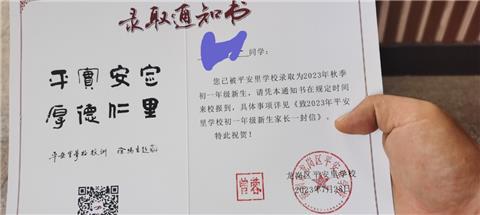 录取通知书
平實安
厚德仁里
平安里学校校训
同学：
您已被平安里学校录取为2023年秋季
初一年级新生，请凭本通知书在规定时间
来校报到，具体事项详见《致2023年平安
里学校初一年级新生家长一封信》。
特此祝贺！
龙岗区平安里学校
2023年7月28日